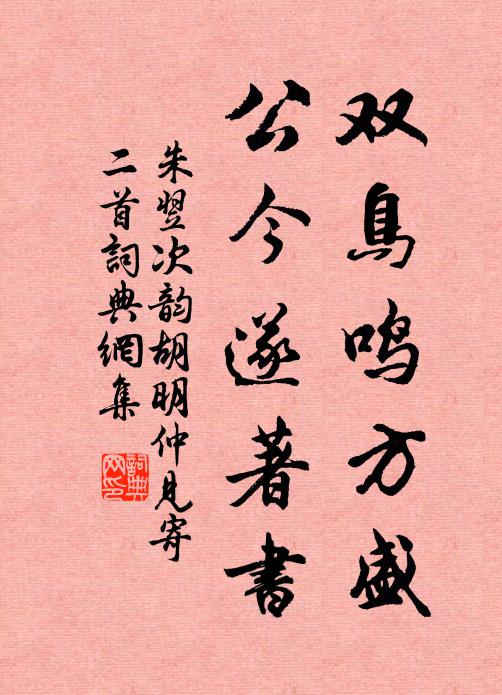 双鳥鸣方盛
公今遂著書
朱翌次韵胡明仲見寄
二首詞典網集
詞典
网印